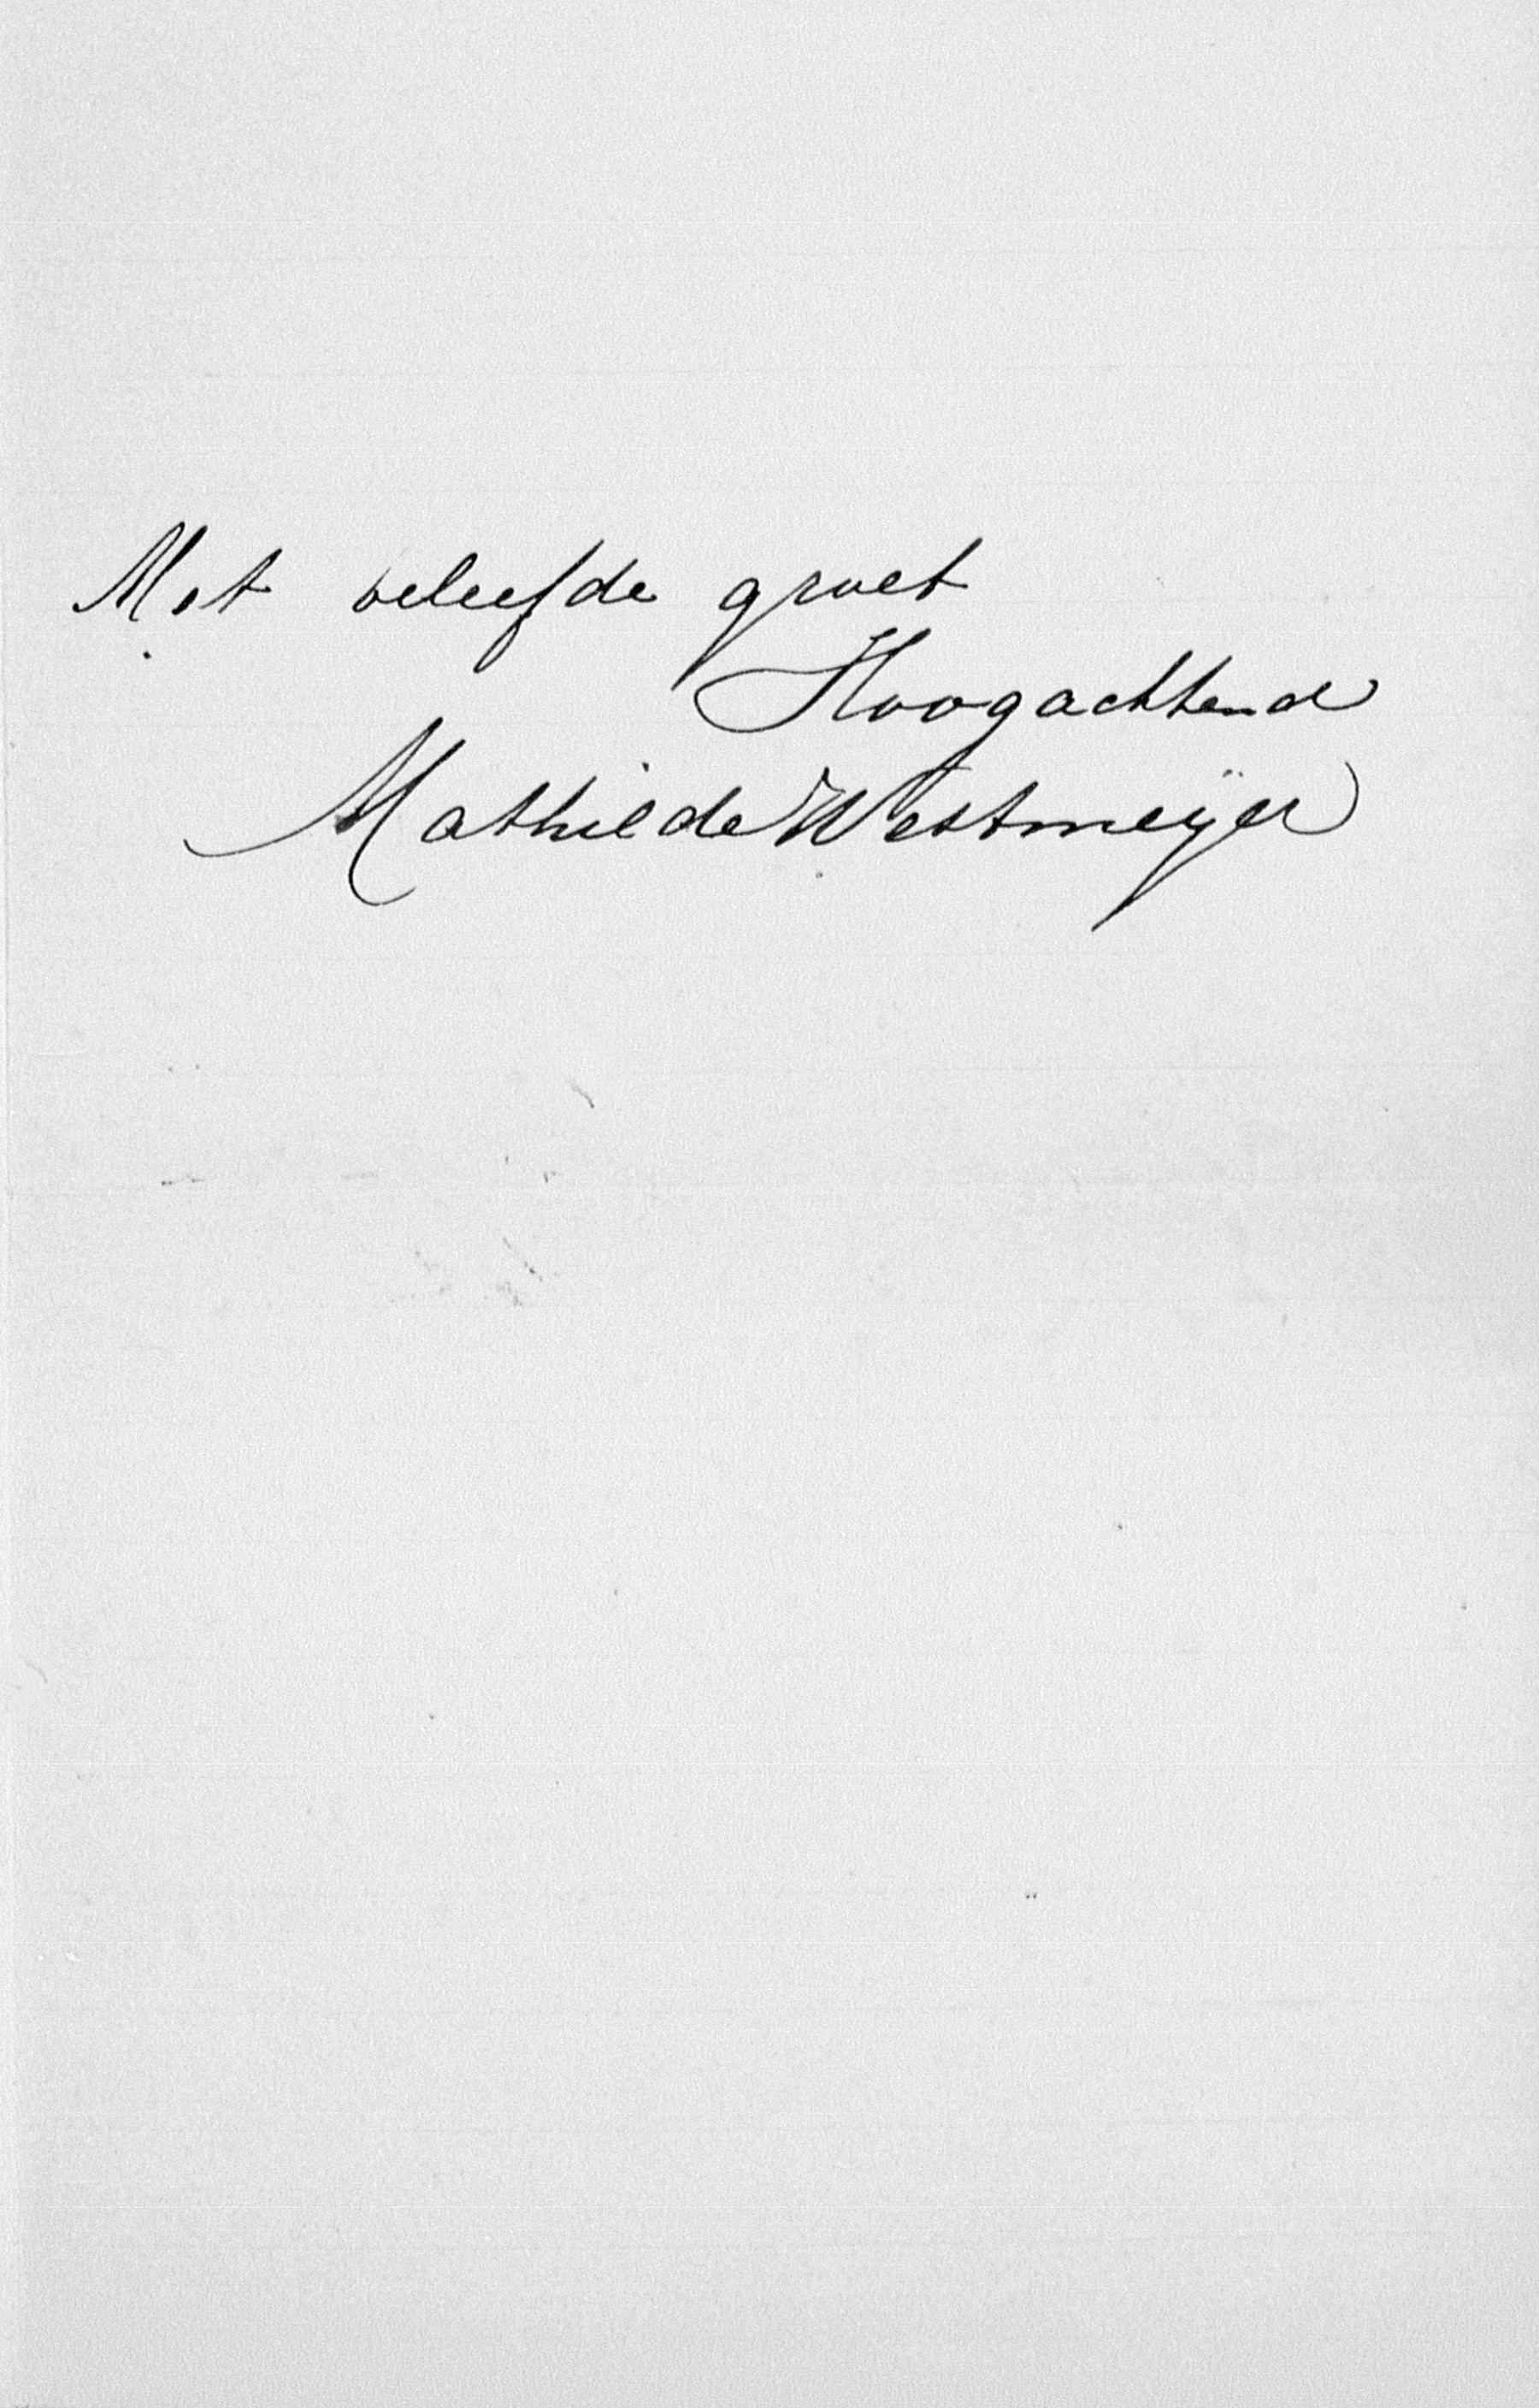 Met beleefde groet
Hoogachtend
Mathilde Westmeÿer